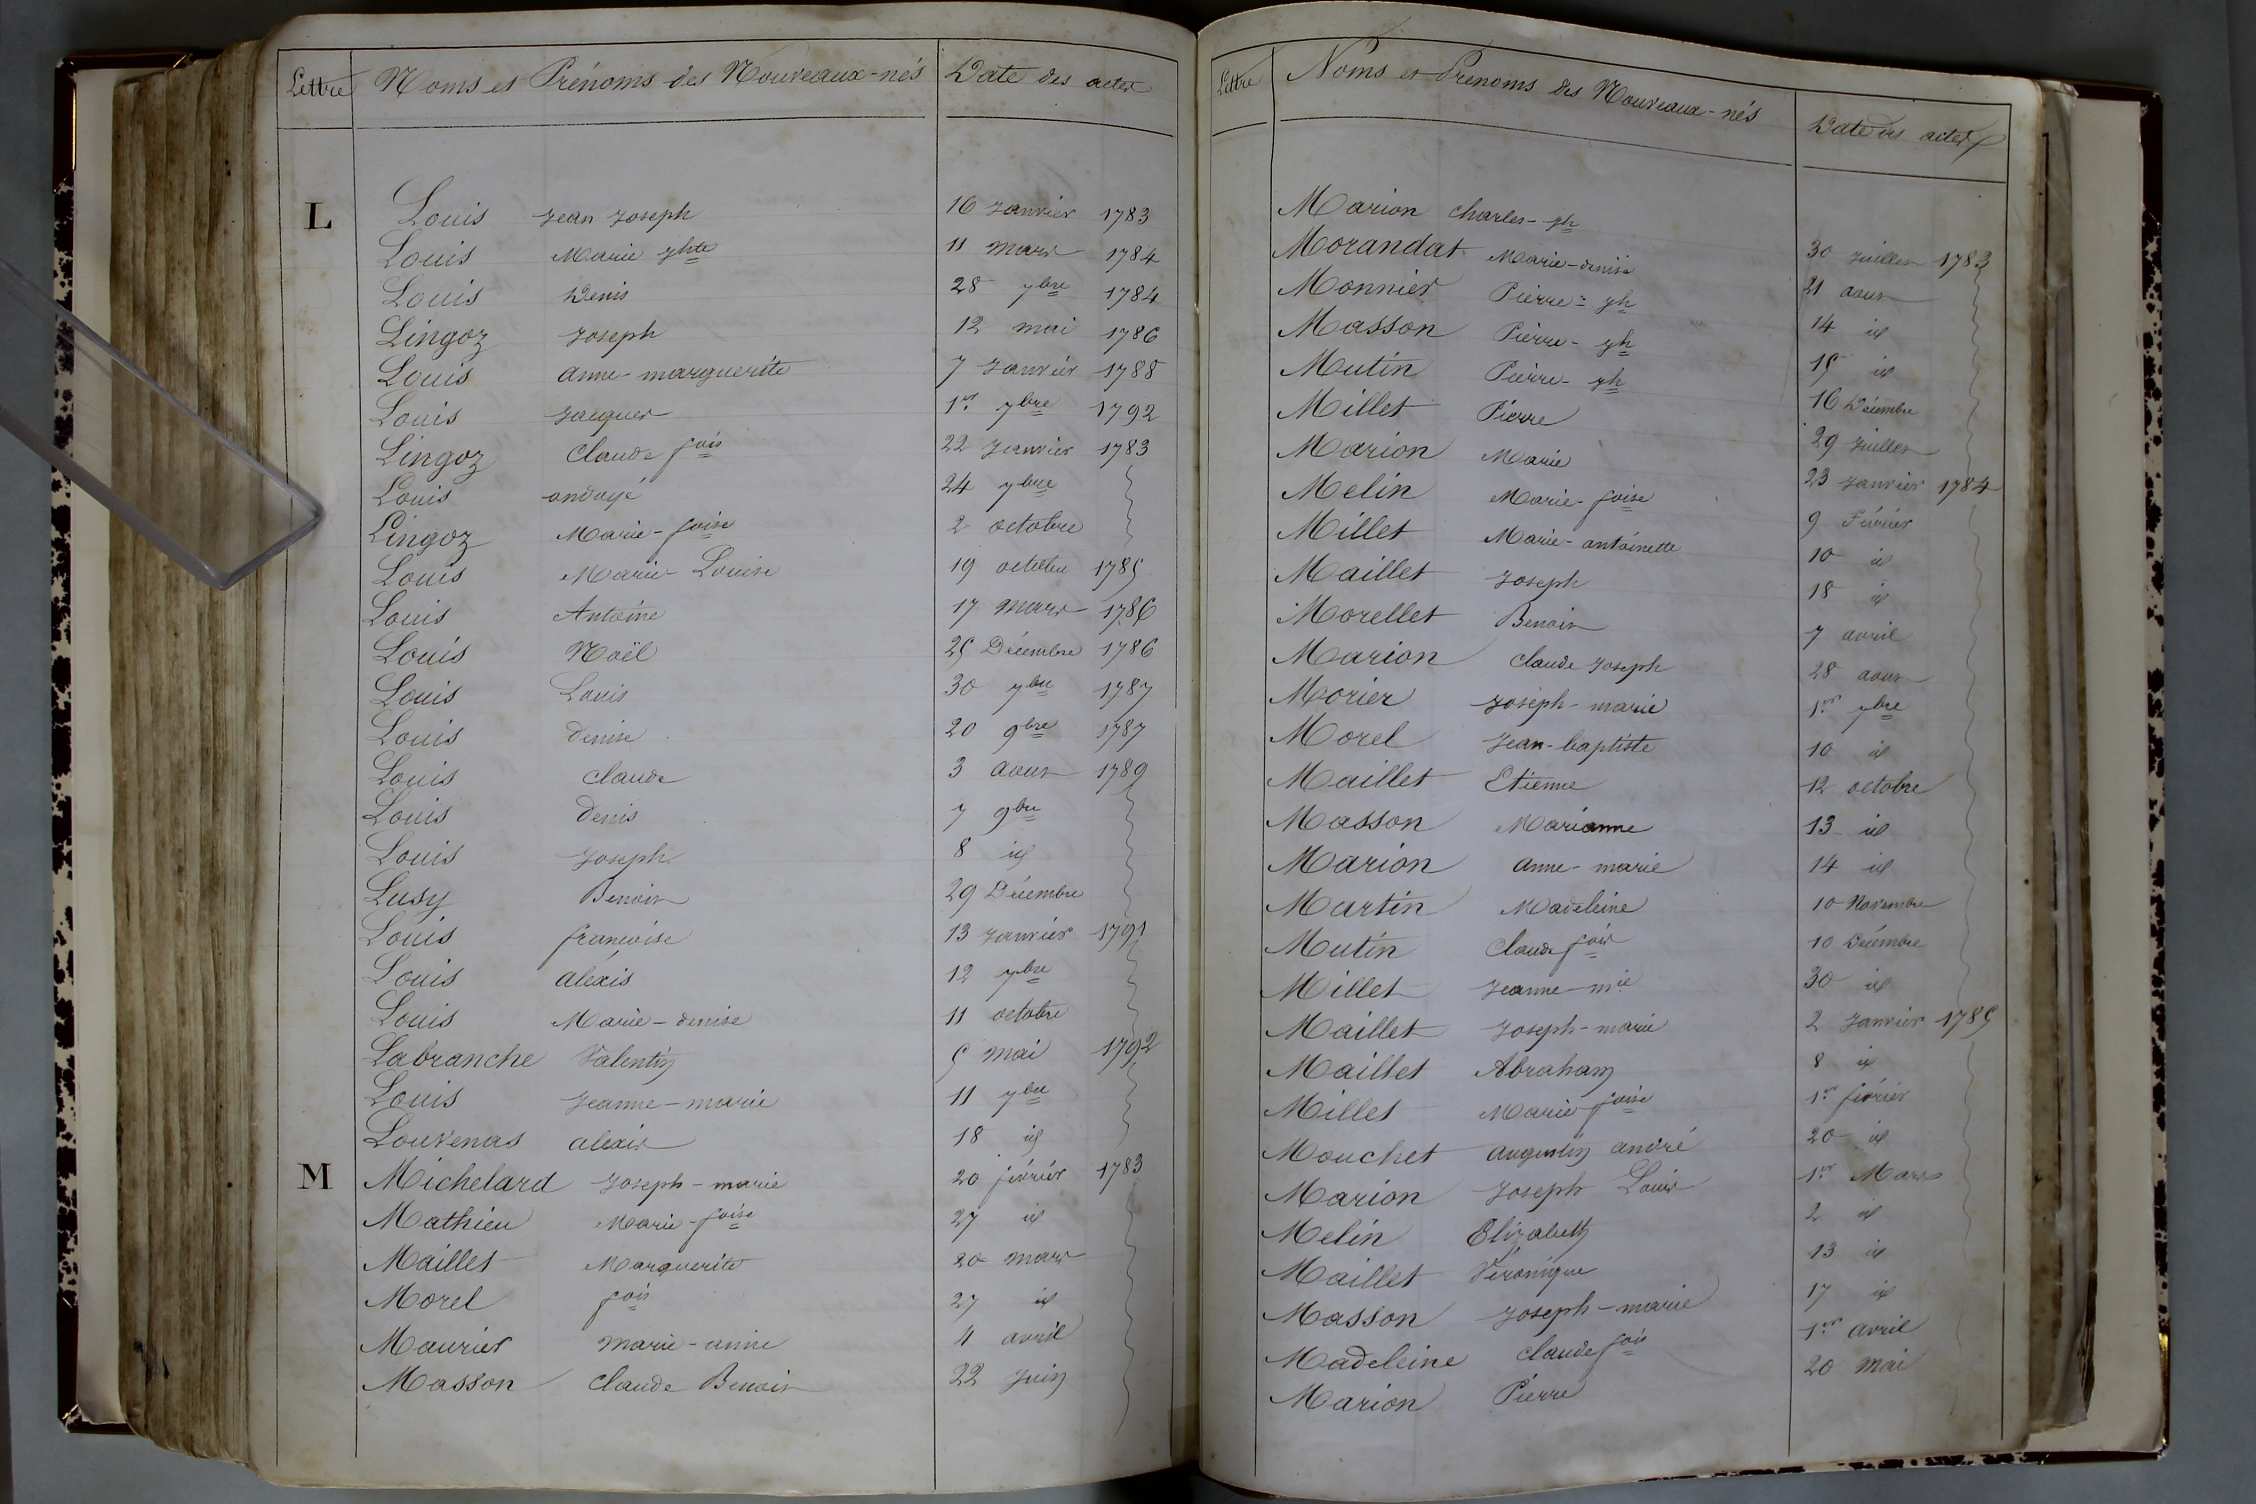 Lettre Noms et Prénoms des Nouveaux-nés Date des actes
L Louis Jean Joseph 16 Janvier 1783
Louis Marie jhte 11 mars 1784
Louis Denis 28 7bre 1784
Lingoz Joseph 12 mai 1786
Louis anne-marguerite 7 Janvier 1788
Louis Jacques 1er 7bre 1792
Lingoz Claude fois 22 Janvier 1783
Louis ondoyé 24 7bre
Lingoz Marie-foise 2 octobre
Louis Marie-Louise 19 octobre 1785
Louis Antoine 17 mars 1786
Louis Noël 25 Décembre 1786
Louis Louis 30 7bre 1787
Louis denise 20 9bre 1787
Louis claude 3 aout 1789
Louis denis 7 9bre
Louis Joseph 8 id
Lusy Benoit 29 Décembre
Louis francoise 13 Janvier 1791
Louis alexis 12 7bre
Louis Marie-denise 11 octobre
Labranche Valentin 5 mai 1792
Louis Jeanne-marie 11 7bre
Louvenas alexis 18 id
M Michelard Joseph-marie 20 février 1783
Mathieu Marie-foise 27 id
Maillet Marguerite 20 mars
Morel fois 27 id
Maurier marie-anne 4 avril
Masson Claude Benoit 22 Juin
Lettre Noms et Prénoms des Nouveaux-nés Date des actes
Marion Charles-jh 30 Juillet 1783
Morandat Marie-denise 21 aout
Monnier Pierre-jh 14 id
Masson Pierre-jh 15 id
Mutin Pierre-jh 16 Décembre
Millet Pierre 29 Juillet
Marion Marie 23 Janvier 1784
Melin Marie-foise 9 Février
Millet Marie-antoinette 10 id
Maillet Joseph 18 id
Morellet Benoit 7 avril
Marion Claude Joseph 28 aout
Morier Joseph-marie 1er 7bre
Morel Jean-baptiste 10 id
Maillet Etienne 12 octobre
Masson Marianne 13 id
Marion anne-marie 14 id
Martin Madeleine 10 Novembre
Mutin Claude fois 10 Décembre
Millet Jeanne-mie 30 id
Maillet Joseph-marie 2 Janvier 1785
Maillet Abraham 8 id
Millet Marie foise 1er février
Mouchet augustin andré 20 id
Marion Joseph Louis 1er Mars
Melin Elizabeth 2 id
Maillet Véronique 13 id
Masson Joseph-marie 17 id
Madeleine Claude fois 1er avril
Marion Pierre 20 mai